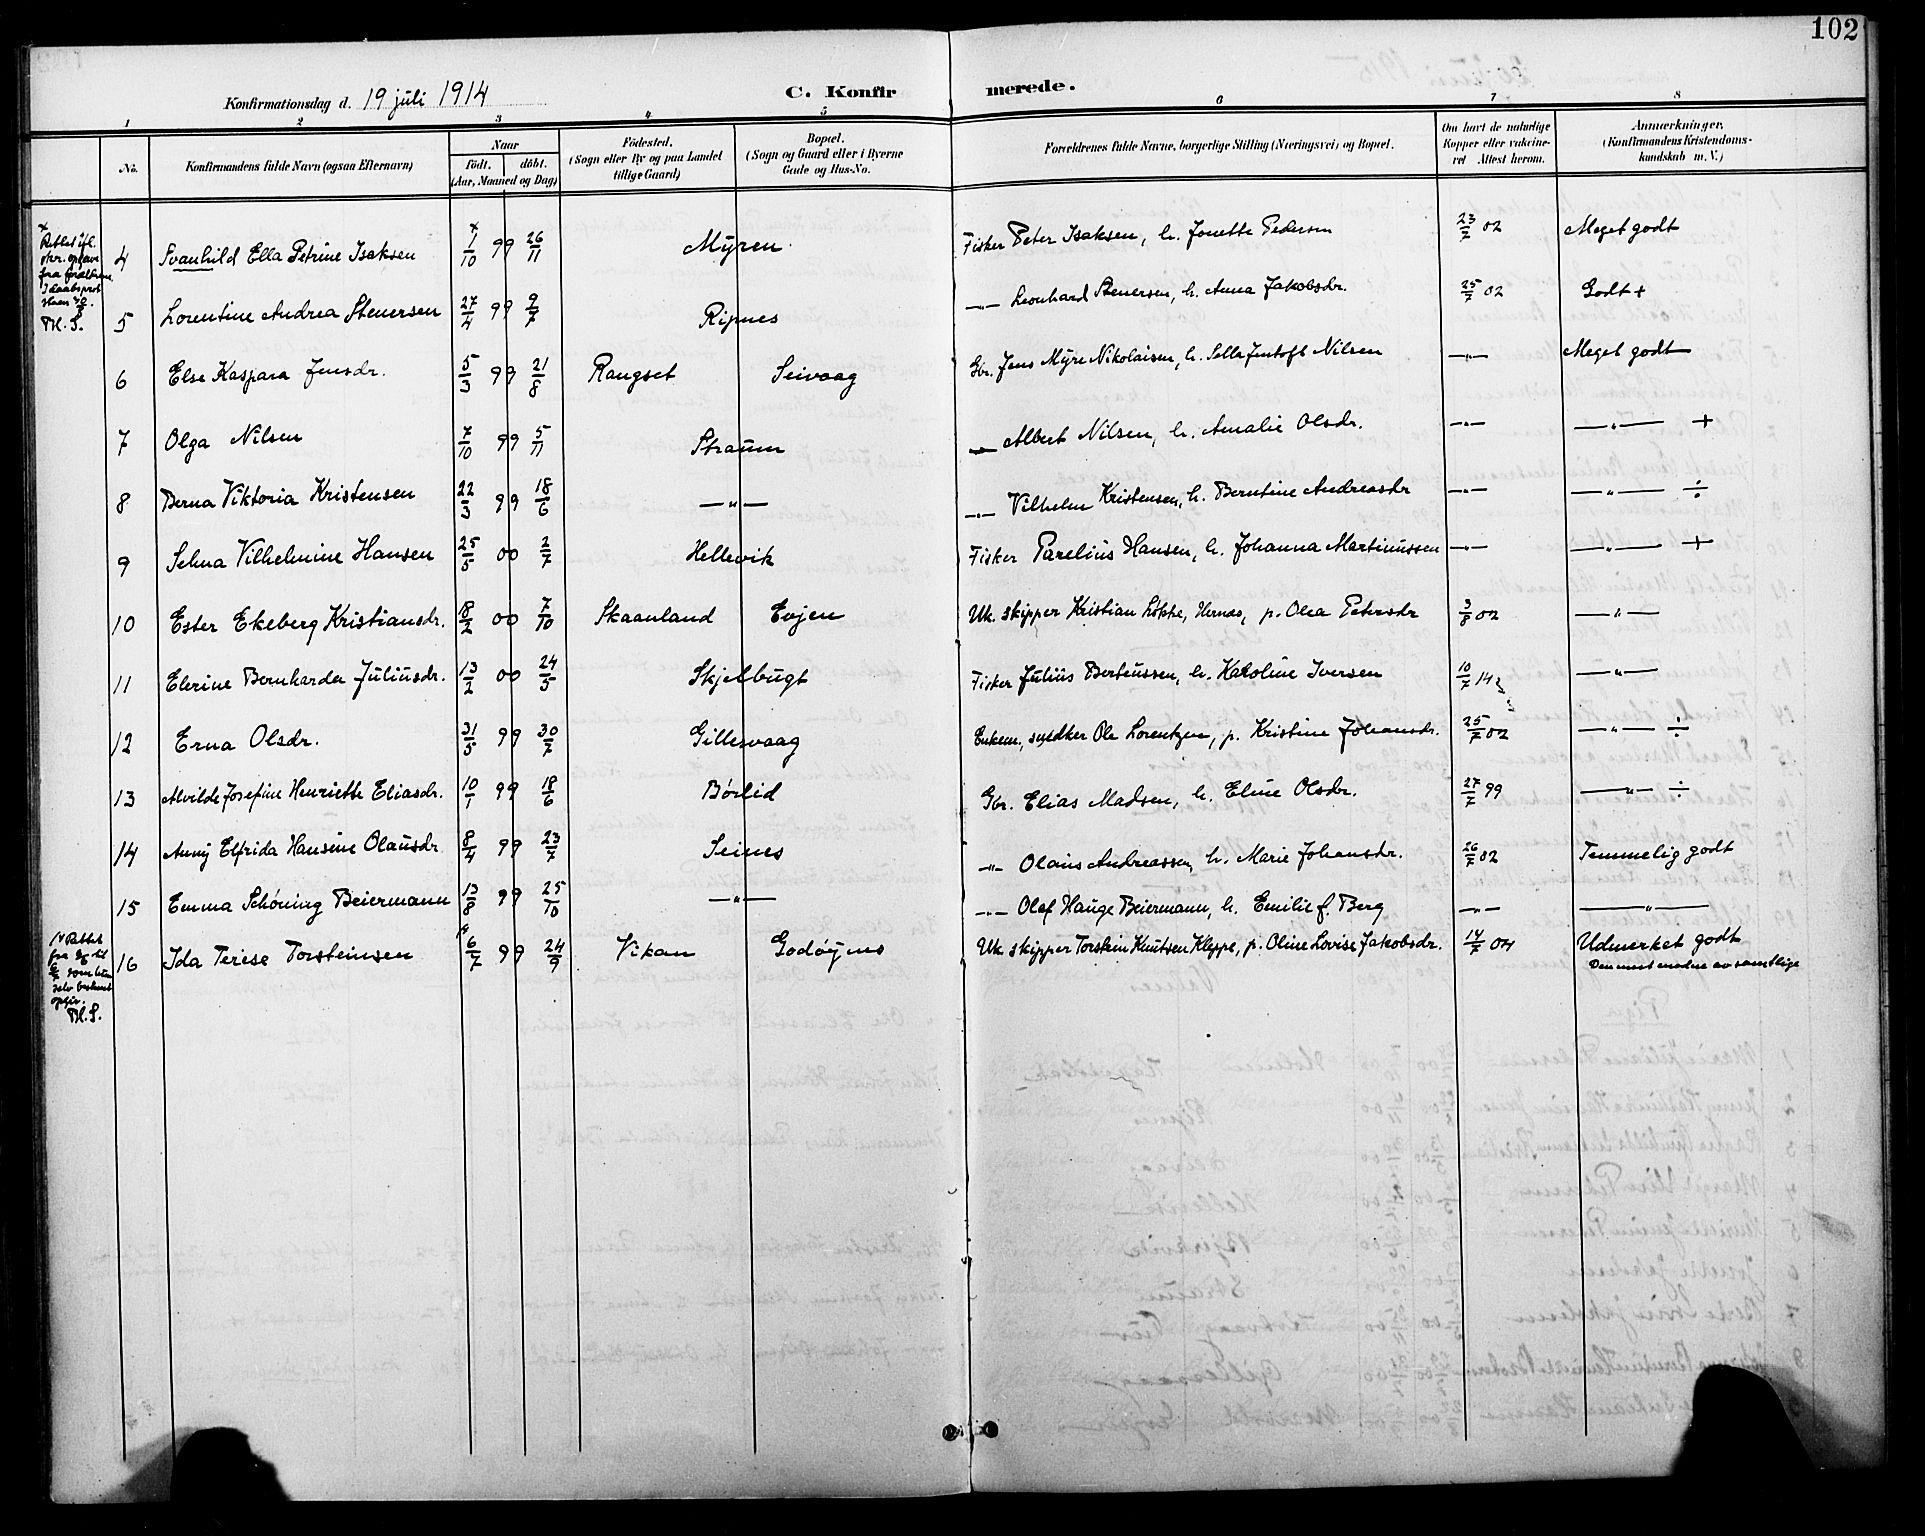 102
Konfirmationsdag d. 19 juli 1914
C. Konfirmerede.
1 2 3 4 5 6 7 8
No. Konfirmandens fulde Navn (ogsaa Efternavn) Naar født. døbt. (Aar, Maaned og Dag) Fødested. (Sogn eller By og paa Landet tillige Gaard) Bopæl. (Sogn og Gaard eller i Byerne Gade og Hus-No. Forældrenes fulde Navne, borgerlige Stilling (Næringsvei) og Bopæl. Om havt de naturlige Kopper eller vakcineret. Attest herom. Anmærkninger. (Konfirmandens Kristendomskundskab m. V.)
4 Svanhild Ella Petrine Isaksen 1/10 99 26/11 Myren Fisker Peter Isaksen, h. Jonette Pedersen 23/7 02 Meget godt
5 Lorentine Andrea Stenersen 27/4 99 9/7 Ripnes —"— Leonhard Stenersen, h. Anna Jakobsdr. 25/7 02 Godt +
6 Else Kaspara Jensdr. 5/3 99 21/8 Rangset Seivaag Gbr. Jens Myre Nikolaisen, h. Sella Jentoft Nilsen —"— Meget godt
7 Olga Nilsen 7/10 99 5/11 Straum —"— Albert Nilsen, h. Amalie Olsdr. —"— —"— +
8 Berna Viktoria Kristensen 22/3 99 18/6 —"— —"— Vilhelm Kristensen, h. Berntine Andreasdr —"— —"— ÷
9 Selma Vilhelmine Hansen 25/5 00 2/7 Hellevik Fisker Parelius Hansen, h. Johanna Martinussen —"— —"— +
10 Ester Ekeberg Kristiansdr. 18/2 00 7/10 Skaanland Evjen Uk. skipper Kristian Løkke, Hernæs, p. Olea Petersdr 3/8 02 —"—
11 Elerine Bernharda Juliusdr. 13/2 00 24/5 Skjelbugt Fisker Julius Berteussen, h. Karoline Iversen 10/7 14 —"—
12 Erna Olsdr. 31/5 99 30/7 Gillesvaag Enkem., snedker Ole Lorentzen, p. Kristine Johansdr. 25/7 02 —"— ÷
13 Alvilde Josefine Henriette Eliasdr. 10/1 99 18/6 Børlid Gbr. Elias Madsen, h. Eline Olsdr. 27/7 99 —"— ÷
14 Anny Elfrida Hansine Olausdr. 8/4 99 23/7 Seines —"— Olaus Andreassen, h. Marie Johansdr. 26/7 02 Temmelig godt
15 Emma Schøning Beiermann 13/8 99 25/10 —"— —"— Olaf Hauge Beiermann, h. Emilie f. Berg —"— —"—
16 Ida Terese Torsteinsen 6/7 99 24/9 Vikan Godøynes Uk. skipper Torstein Knutsen Kleppe, p. Oline Lovise Jakobsdr. 14/7 04 Udmerket godt
Den mest modne av samtlige